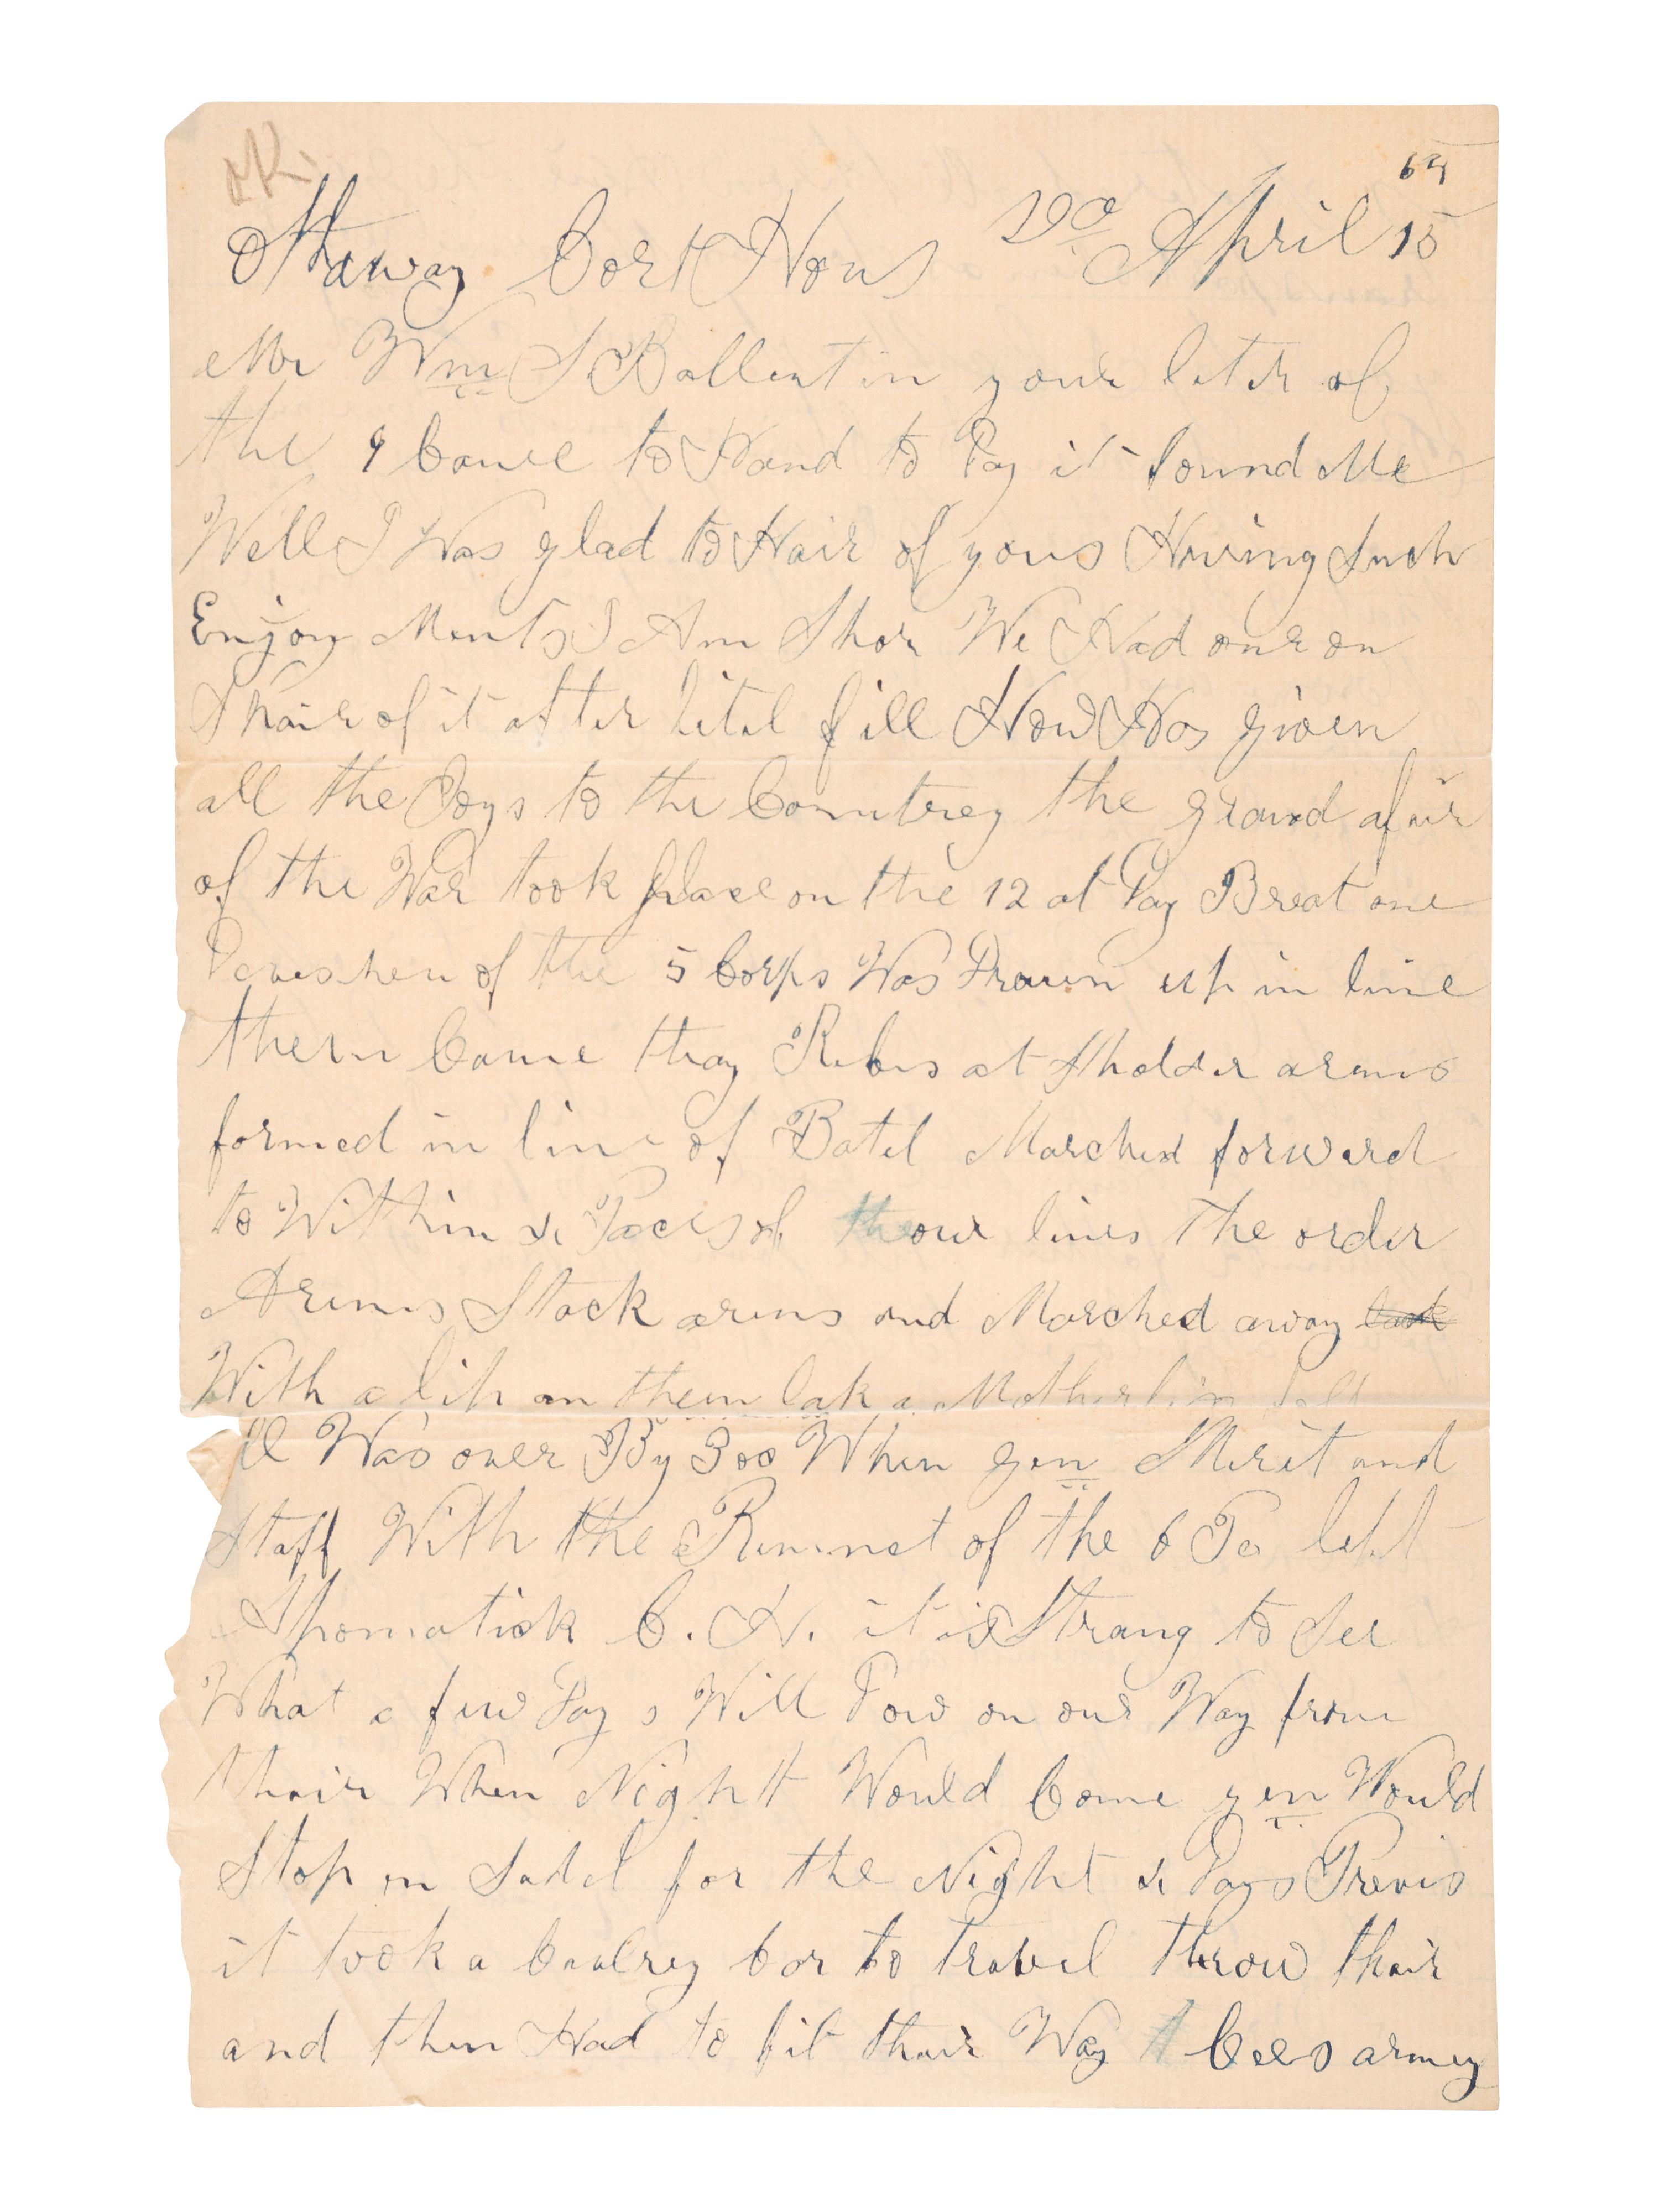 65
Ottaway Cort Hous Va April 15
Mr Wm S Ballentin your leter of
the 9 Came to Hand to Day it found Me
Well I Was glad to Hair of yous Having Such
Enjoy Ments I Am Shor We Had our on
Shair of it after litel fill How Has given
all the Joys to the Countrey the grand afair
of the War took place on the 12 at Day Breat one
Daveshen of the 5 Corps Was Drawn up in line
then Came thay Rebes at Sholder arms
formed in line of Batel Marched forward
to Within Paces of our lines the order
Arms Stack arms and Marched away
With a lip on them lak a Motherlin
ll Was over By 3oo When gen Merit and
Staff With the Remnet of the 6 Pa left
Apomatick C. H. it is Strang to See
What a few Day s Will Dow on our Way from
thair When Night Would Come gen Would
Stop in Sadel for the Night Days Previs
it took a Cavalrey Cor to travel throw thair
and then Had to fit thair Way Lees armey